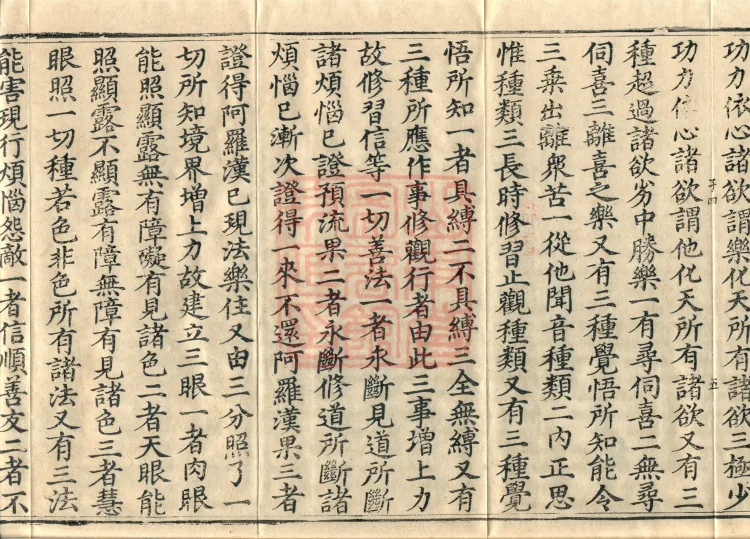 功力依心諸欲謂樂化天所有諸欲三極少
功力依心諸欲謂他化天所有諸欲又有三
種超過諸欲劣中勝樂一有尋伺喜二無尋
伺喜三離喜之樂又有三種覺悟所知能令
三乘出離眾苦一從他聞音種類二內正思
惟種類三長時修習止觀種類又有三種覺
悟所知一者具縛二不具縛三全無縛又有
三種所應作事修觀行者由此三事增上力
故修習信等一切善法一者永斷見道所斷
諸煩惱已證預流果二者永斷修道所斷諸
煩惱已漸次證得一來不還阿羅漢果三者
證得阿羅漢已現法樂住又由三分照了一
切所知境界增上力故建立三眼一者肉眼
能照顯露無有障礙有見諸色二者天眼能
照顯露不顯露有障無障有見諸色三者慧
眼照一切種若色非色所有諸法又有三法
能害現行煩惱怨敵一者信順善友二者不